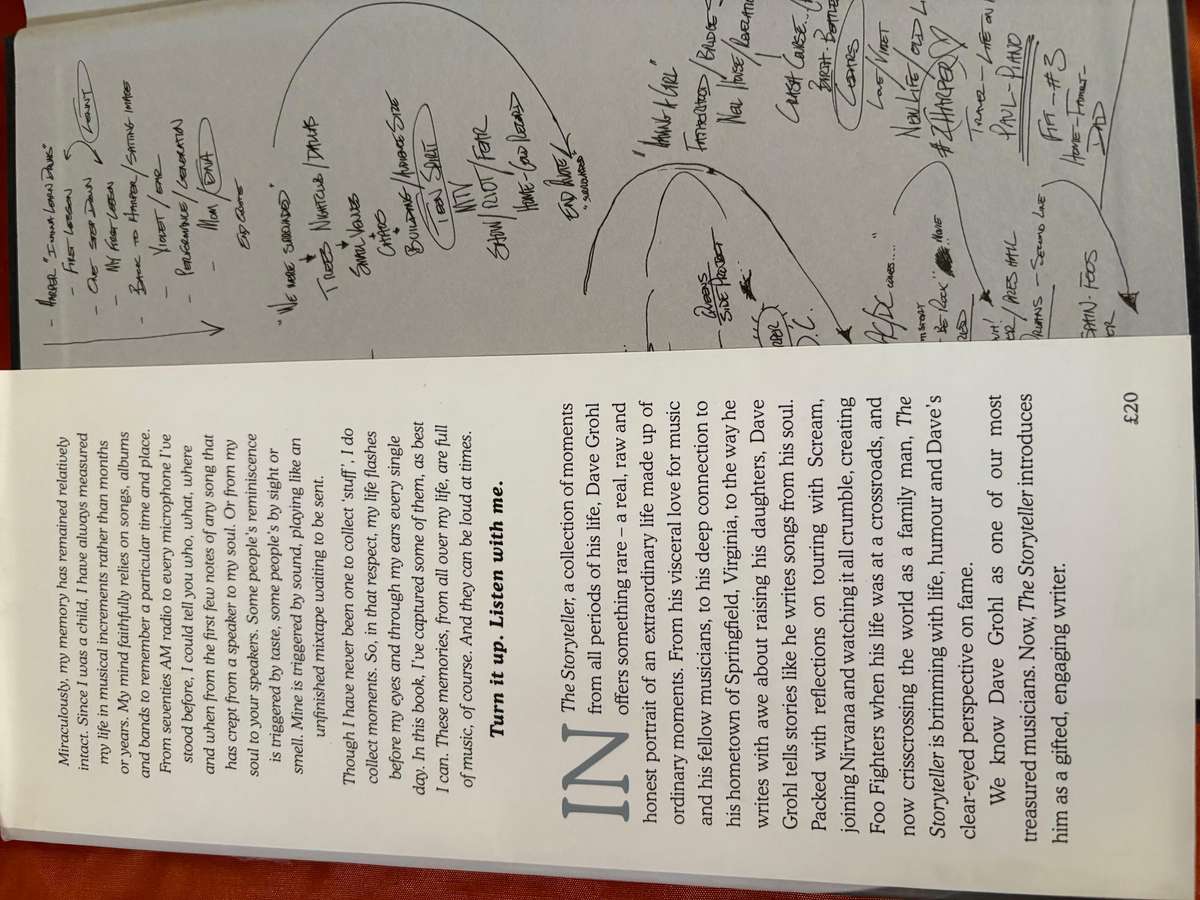 Miraculously, my memory has remained relatively
intact. Since I was a child, I have always measured
my life in musical increments rather than months
or years. My mind faithfully relies on songs, albums
and bands to remember a particular time and place.
From seventies AM radio to every microphone I've
stood before, I could tell you who, what, where
and when from the first few notes of any song that
has crept from a speaker to my soul. Or from my
soul to your speakers. Some people's reminiscence
is triggered by taste, some people's by sight or
smell. Mine is triggered by sound, playing like an
unfinished mixtape waiting to be sent.
Though I have never been one to collect 'stuff', I do
collect moments. So, in that respect, my life flashes
before my eyes and through my ears every single
day. In this book, I've captured some of them, as best
I can. These memories, from all over my life, are full
of music, of course. And they can be loud at times.
Turn it up. Listen with me.
IN The Storyteller, a collection of moments
from all periods of his life, Dave Grohl
offers something rare – a real, raw and
honest portrait of an extraordinary life made up of
ordinary moments. From his visceral love for music
and his fellow musicians, to his deep connection to
his hometown of Springfield, Virginia, to the way he
writes with awe about raising his daughters, Dave
Grohl tells stories like he writes songs from his soul.
Packed with reflections on touring with Scream,
joining Nirvana and watching it all crumble, creating
Foo Fighters when his life was at a crossroads, and
now crisscrossing the world as a family man, The
Storyteller is brimming with life, humour and Dave's
clear-eyed perspective on fame.
We know Dave Grohl as one of our most
treasured musicians. Now, The Storyteller introduces
him as a gifted, engaging writer.
£20
- HARPER "I WANNA LEARN DRUMS"
- FIRST LESSON
- ONE STEP DOWN
- MY FIRST LESSON
- BACK TO HARPER / SPITTING IMAGE
- VIOLET / EAR
- PERFORMANCE / GENERATION
- MOM / DNA
END QUOTE
"WE WERE SURROUNDED"
TREES NIGHTCLUB / DALLAS
SMALL VENUES
CHAOS
BUILDING / ADVANCE SIZE
TEEN SPIRIT
MTV
SHOW / RIOT / FEAR
HOME - GOLD RECORD
END QUOTE
"SURROUNDED"
"HAVING A GIRL"
FATHERHOOD / BRIDGE
NEW HOUSE / REVELATION
CRASH COURSE...
BIRTH - BEATLES
CEDARS
LOVE / VIOLET
NEW LIFE / OLD
#2 (HARPER)
TRAVEL - LIFE ON
PAUL - PIANO
FIFI - #3
HOME - FAMILY -
DAD
QUEENS
SIDE PROJECT
AC/DC
SPAIN - FOOS